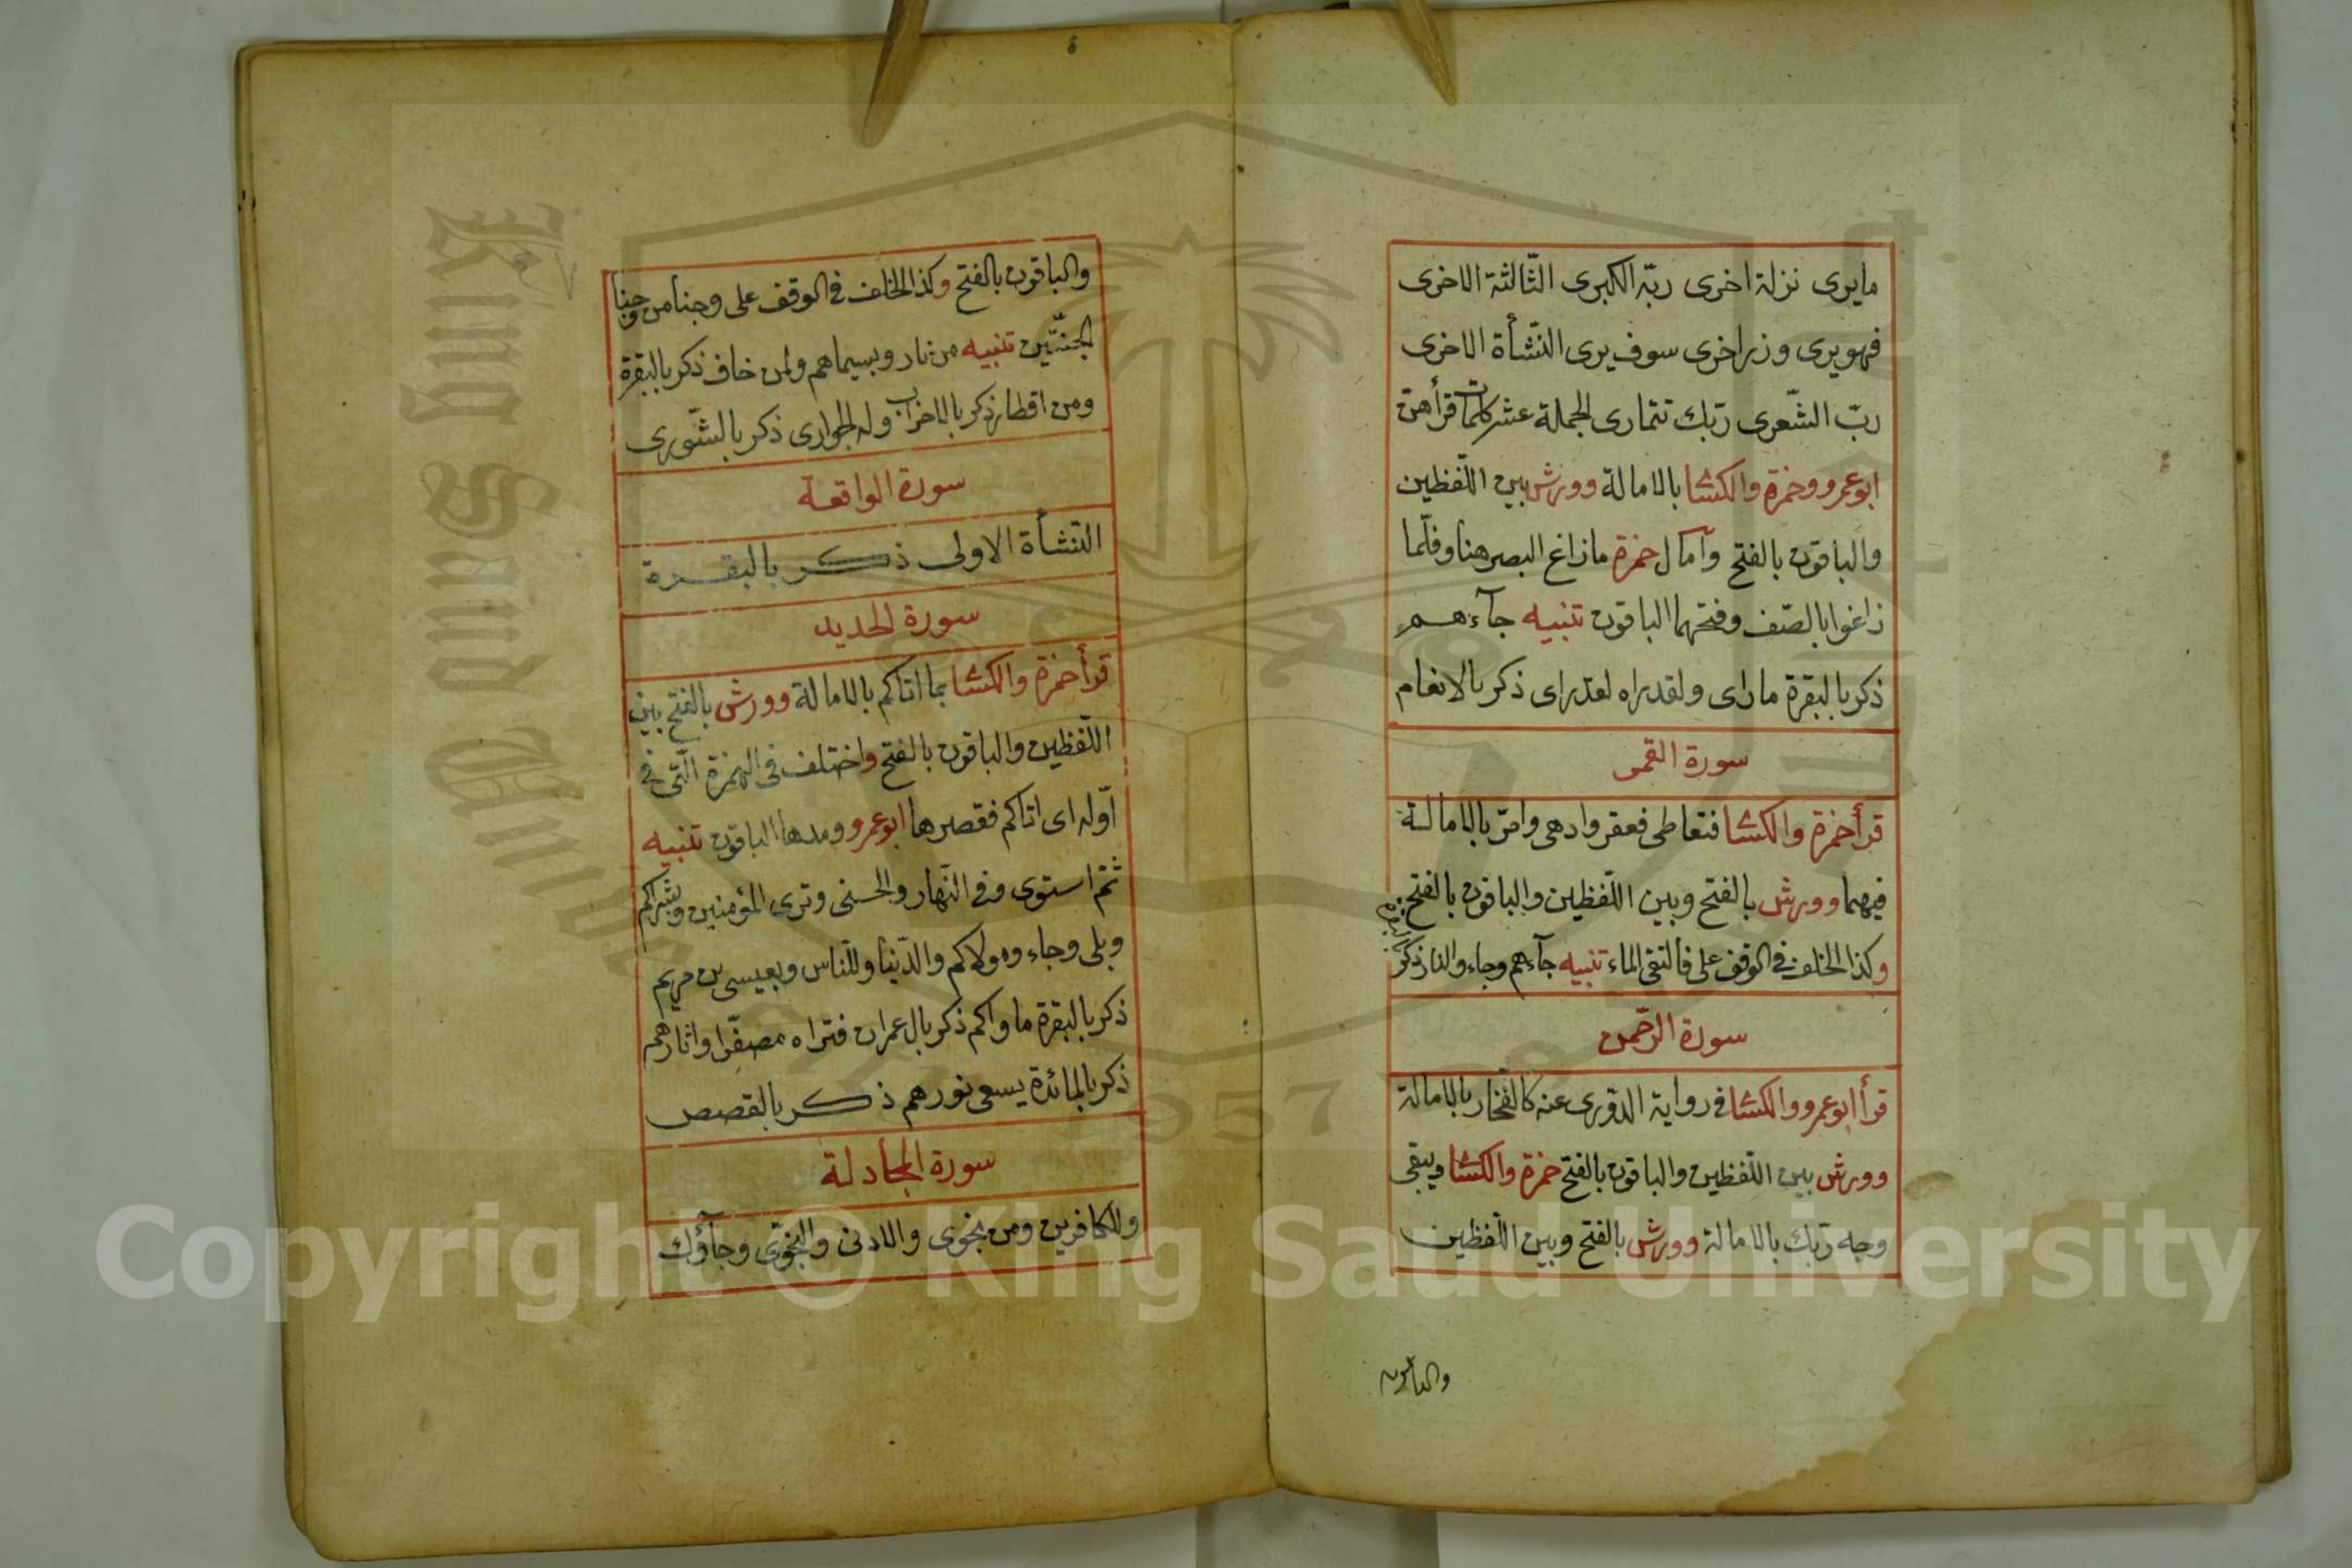 مايرى نزلة اخرى ربّه الكبرى الثّالثة الاخرى
فهويرى وزر اخرى سوف يرى النّشأة الاخرى
ربّ الشّعرى ربّك تتمارى الجملة عشر كلمات قرأ هنّ
ابوعمرو وحمزة والكسّا بالامالة وورش بين اللّفظين
والباقون بالفتح وآمال حمزة مازاغ البصر هنا وفلّما
زاغوا بالصّف وفتحهما الباقون تنبيه جآءهم
ذكر بالبقرة ماراى ولقد راه لقد راى ذكر بالانعام
سورة القمر
قرأ حمزة والكسّا فتعاطى فعقر وادهى وامرّ بالامالة
فيهما وورش بالفتح وبين اللّفظين والباقون بالفتح
وكذا الخلف فى الوقف على فالتقى الماء تنبيه جآءهم وجاء والنار ذكر بالبقرة
سورة الرّحمن
قرأ ابوعمرو والكسّا فى رواية الدّورى عنه كالفخّار بالامالة
وورش بين اللّفظين والباقون بالفتح حمزة والكسّا ويبقى
وجه ربّك بالامالة وورش بالفتح وبين اللّفظين
والباقون
والباقون بالفتح وكذا الخلف فى الوقف على وجنا من وجنا
الجنّتين تنبيه من نار وبسيماهم ولمن خاف ذكر بالبقرة
ومن اقطار ذكر بالاحزاب وله الجوارى ذكر بالشّورى
سورة الواقعة
النّشأة الاولى ذكر بالبقرة
سورة الحديد
قرأ حمزة والكسّا بما اتاكم بالامالة وورش بالفتح بين
اللّفظين والباقون بالفتح واختلف فى الهمزة الّتى فى
اوّله اى اتاكم فقصرها ابوعمرو ومدها الباقون تنبيه
ثمّ استوى وفى النّهار والحسنى وترى المؤمنين وبشراكم
وبلى وجاء ومولاكم والدّنيا وللنّاس وبعيسى بن مريم
ذكر بالبقرة ماواكم ذكر بال عمران فتراه مصفّرا واثارهم
ذكر بالمائدة يسعى نورهم ذكر بالقصص
سورة المجادلة
وللكافرين ومن نجوى والادنى والنّجوى وجآؤك
King Saud University
1957
Copyright © King Saud University